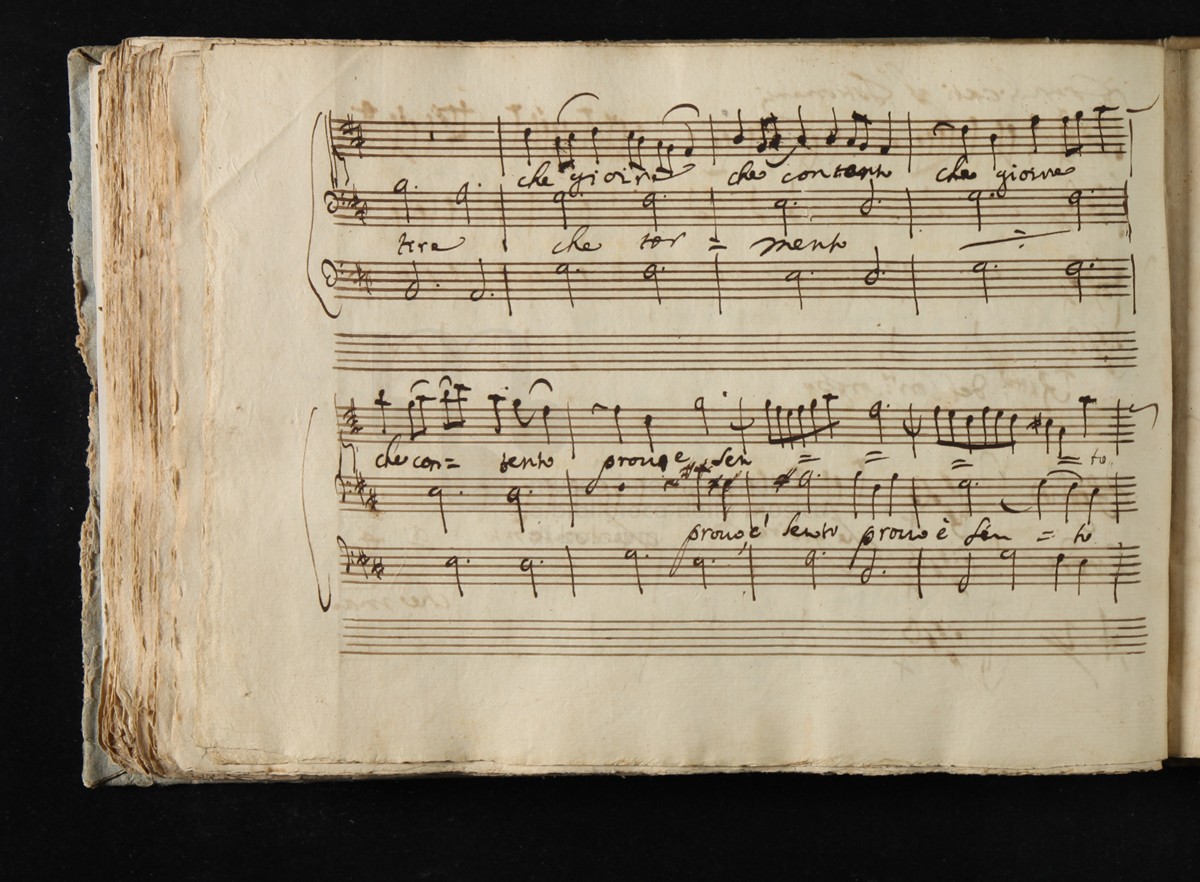 che gioire che contento che gioire
tire che tor = mento
che con= tento prouo e sen = = = to
prouo e' sento prouo è sen = to